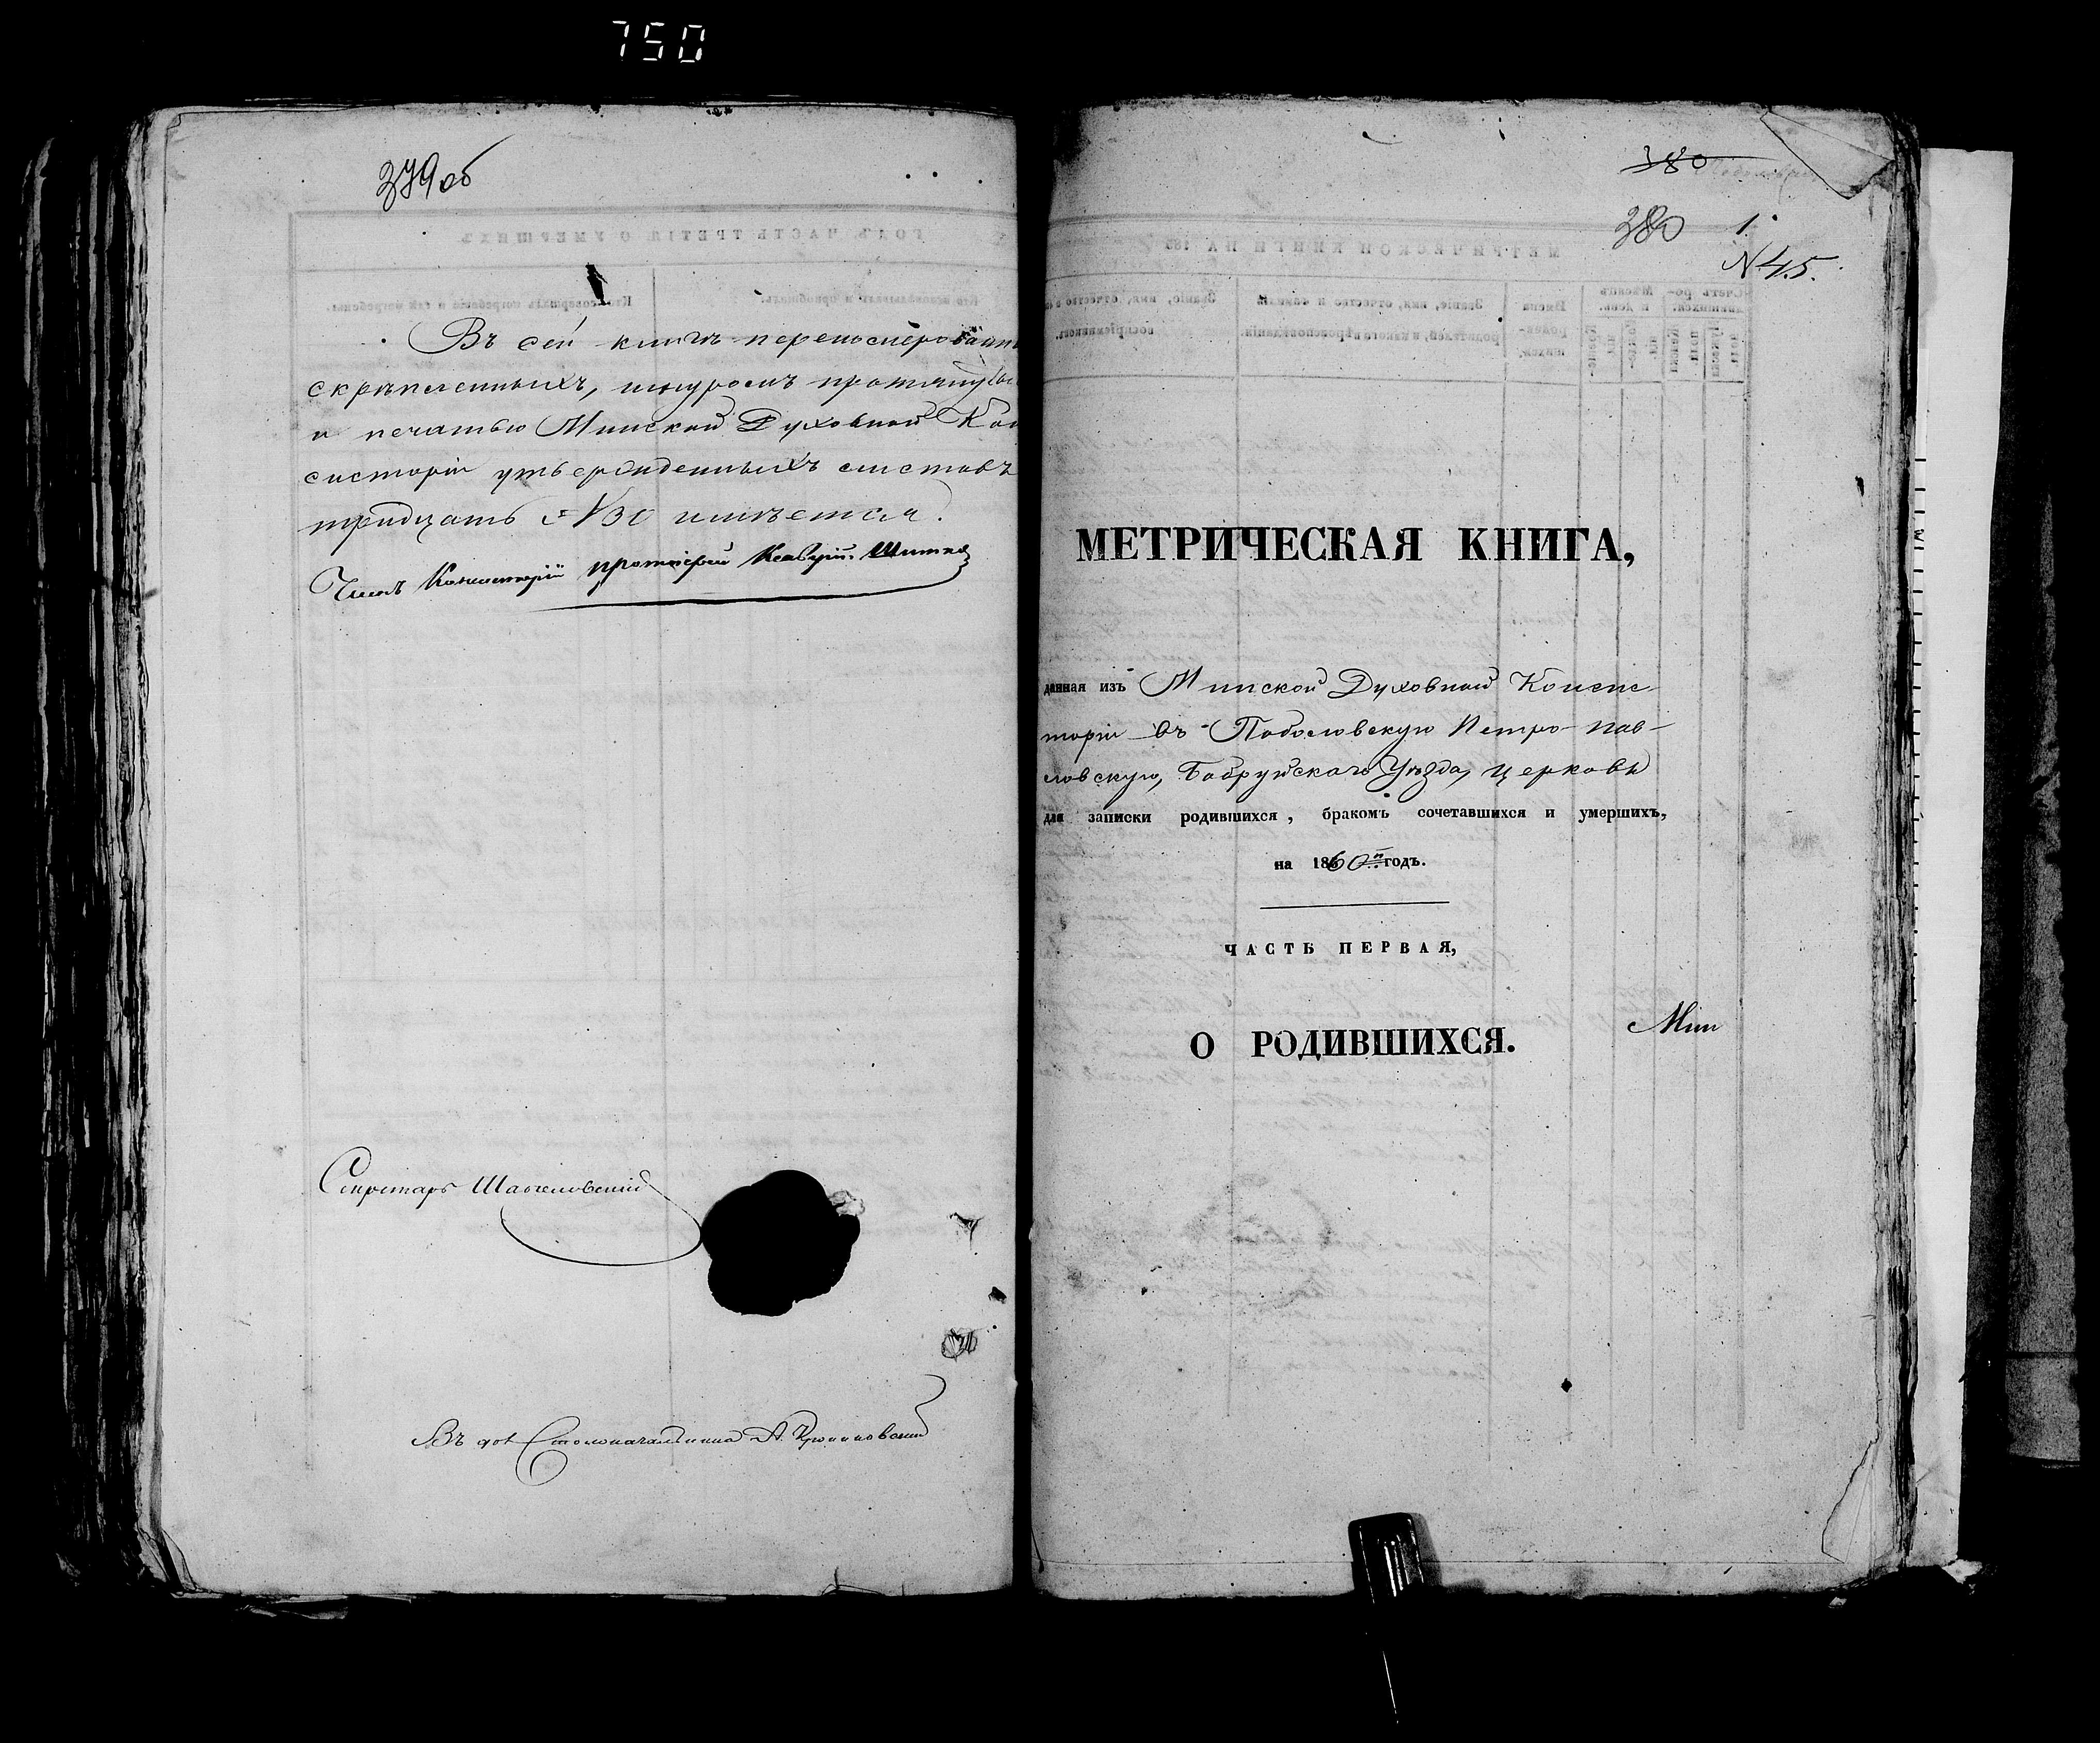 750
379 об
Въ сей книгѣ перенумерованны
скрѣпленныхъ, шнуромъ протянуты
и печатью Минской Духовной Кон
систоріи утвержденныхъ листовъ
тридцать № 30 имѣется.
Членъ Консисторіи протоіерей
Секретарь
Въ дол Столоначальника А.
380
380 1.
№ 45.
МЕТРИЧЕСКАЯ КНИГА,
данная изъ Минской Духовной Консис-
торіи въ Поболовскую Петро-Пав-
ловскую, Бобруйскаго Уѣзда, церковь
для записки родившихся, бракомъ сочетавшихся и умершихъ,
на 1860й годъ.
ЧАСТЬ ПЕРВАЯ,
О РОДИВШИХСЯ.
Мин